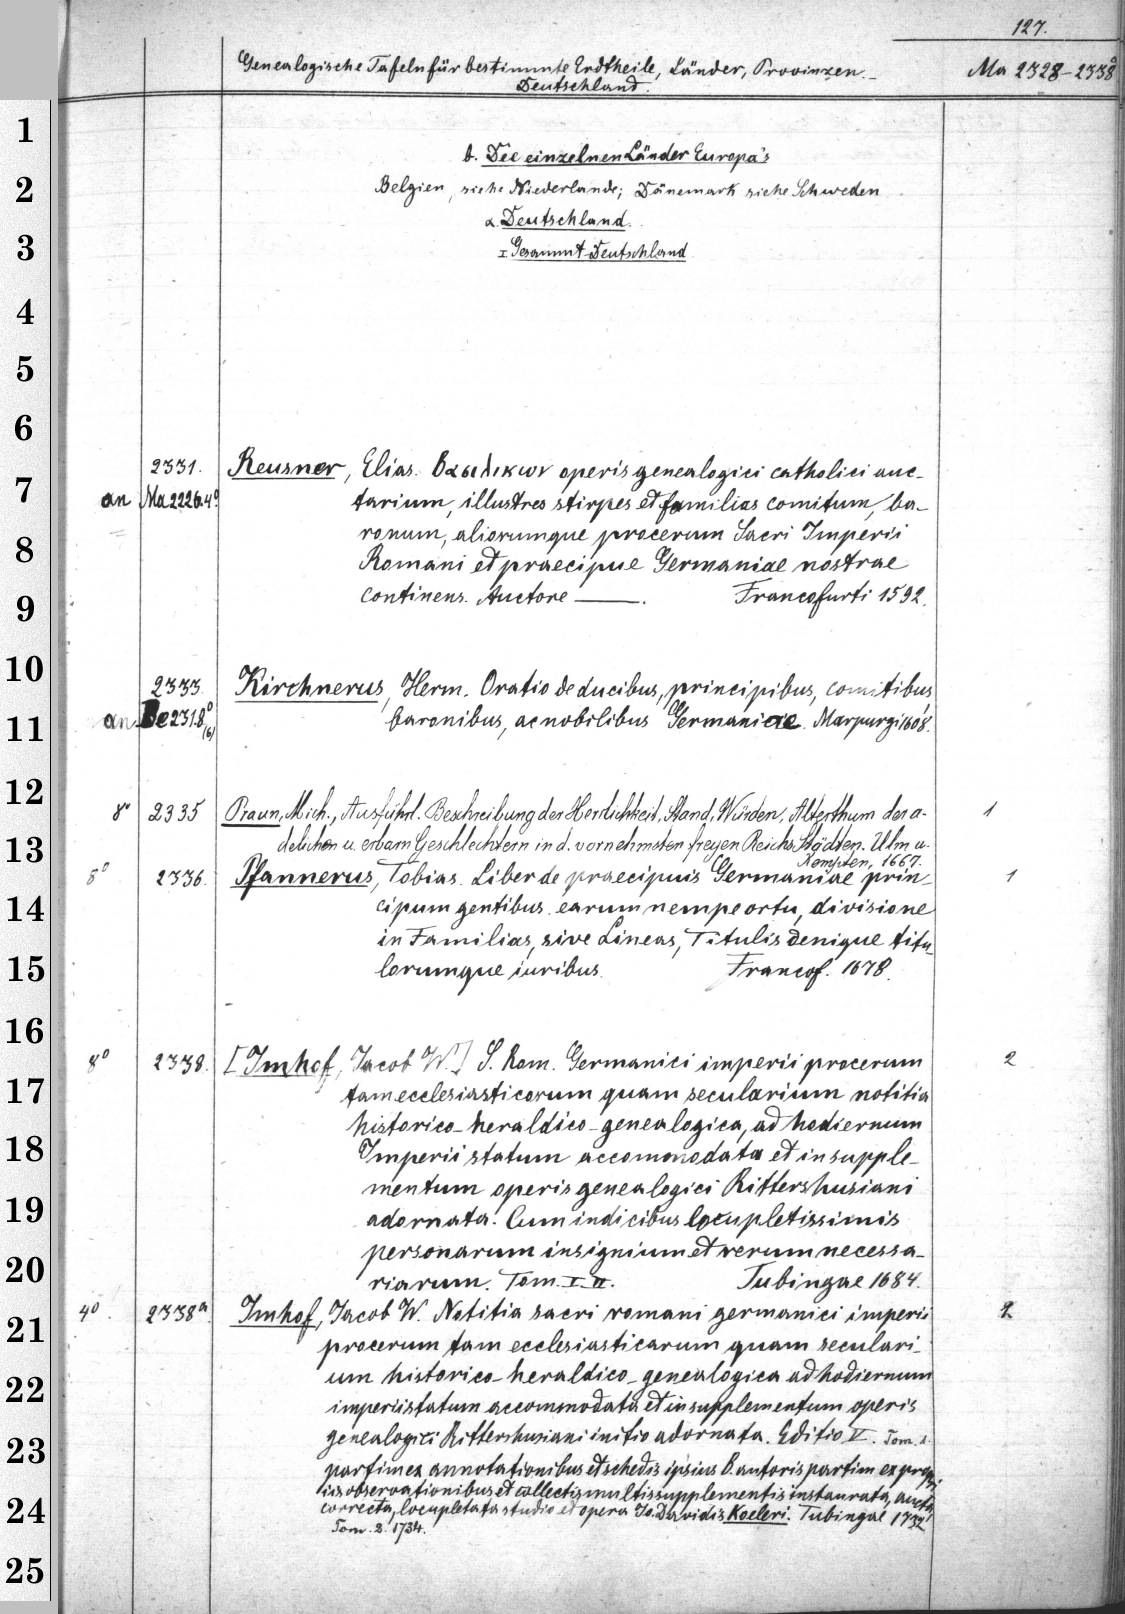 127.
Genealogische Tafeln für bestimmte Erdtheile, Länder, Provinzen.
Deutschland.
Ma 2328-2338a
b. Die einzelnen Länder Europa's
Belgien, siehe Niederlande; Dänemark siehe Schweden
α. Deutschland.
I Gesammt-Deutschland
1
2
3
4
5
6
7
8
9
10
11
12
13
14
15
16
17
18
19
20
21
22
23
24
25
2331. Reusner, Elias. Βασιλικων operis genealogici catholici auc-
an Ma 2226. 4° tarium, illustres stirpes et familias comitum, ba-
ronum, aliorumque procerum Sacri Imperii
Romani et praecipue Germaniae nostrae
continens. Auctore ———. Francofurti 1592.
2333. Kirchnerus, Herm. Oratio de ducibus, principibus, comitibus,
an De 231. 8° (6) baronibus, ac nobilibus Germaniae. Marpurgi 1608.
8° 2335 Praun, Mich., Ausführl. Beschreibung der Herrlichkeit, Stand, Würden, Alterthum der a- 1
delichen u. erbarn Geschlechtern in d. vornehmsten freyen Reichs Städten. Ulm u.
Kempten, 1667.
8° 2336. Pfannerus, Tobias. Liber de praecipuis Germaniae prin- 1
cipum gentibus earum nempe ortu, divisione
in Familias, sive Lineas, Titulis denique titu-
lorumque iuribus. Francof. 1678.
8° 2338. [Imhof, Jacob W.] S. Rom. Germanici imperii procerum 2
tam ecclesiasticorum quam secularium notitia
historico-heraldico-genealogica, ad hodiernum
Imperii statum accomodata et in supple-
mentum operis genealogici Rittershusiani
adornata. Cum indicibus locupletissimis
personarum insignium et rerum necessa-
riarum. Tom. I-II. Tubingae 1684.
4° 2338a Imhof, Jacob W. Notitia sacri romani germanici imperii 2
procerum tam ecclesiasticarum quam seculari-
um historico-heraldico-genealogica ad hodiernum
imperii statum accommodata et in supplementum operis
genealogici Rittershusiani initio adornata. Editio V. Tom. 1.
partim ex annotationibus et schedis ipsius B. autoris partim ex propri-
is observationibus et collectis multis supplementis instaurata, aucta,
correcta, locupletata studio et opera Jo. Davidis Koeleri. Tubingae 1732
Tom. 2. 1734.